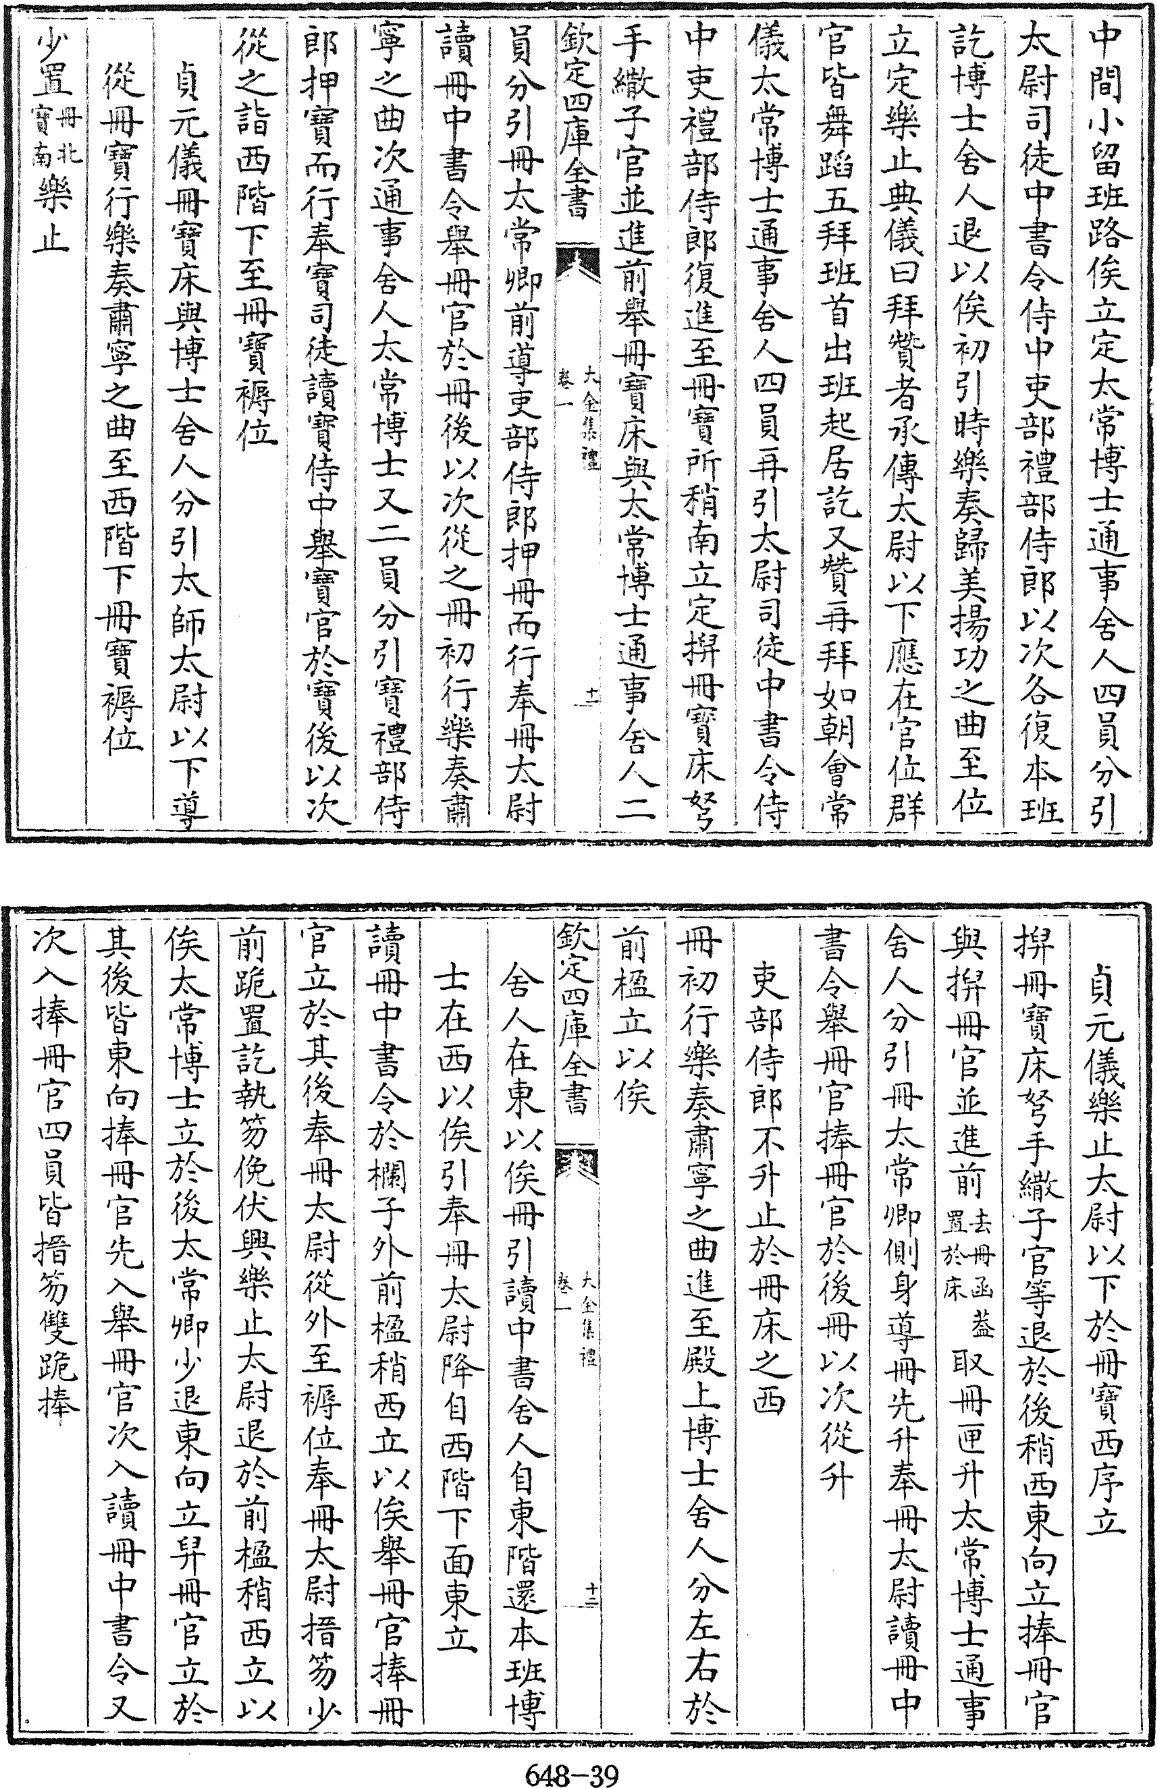 中間小留班路俟立定太常博士通事舍人四員分引
太尉司徒中書令侍中吏部禮部侍郎以次各復本班
訖博士舍人退以俟初引時樂奏歸美揚功之曲至位
立定樂止典儀曰拜贊者承傳太尉以下應在官位群
官皆舞蹈五拜班首出班起居訖又贊再拜如朝會常
儀太常博士通事舍人四員再引太尉司徒中書令侍
中吏禮部侍郎復進至冊寶所稍南立定搿冊寶床弩
手繖子官並進前舉冊寶床與太常博士通事舍人二
欽定四庫全書
大金集禮
卷一
十一
員分引冊太常卿前導吏部侍郎押冊而行奉冊太尉
讀冊中書令舉冊官於冊後以次從之冊初行樂奏肅
寧之曲次通事舍人太常博士又二員分引寶禮部侍
郎押寶而行奉寶司徒讀寶侍中舉寶官於寶後以次
從之詣西階下至冊寶褥位
貞元儀冊寶床與博士舍人分引太師太尉以下導
從冊寶行樂奏肅寧之曲至西階下冊寶褥位
少置冊北寶南樂止
貞元儀樂止太尉以下於冊寶西序立
搿冊寶床弩手繖子官等退於後稍西東向立捧冊官
與搿冊官並進前去冊函蓋置於床取冊匣升太常博士通事
舍人分引冊太常卿側身導冊先升奉冊太尉讀冊中
書令舉冊官捧冊官於後冊以次從升
吏部侍郎不升止於冊床之西
冊初行樂奏肅寧之曲進至殿上博士舍人分左右於
前楹立以俟
欽定四庫全書
大金集禮
卷一
十二
舍人在東以俟冊引讀中書舍人自東階還本班博
士在西以俟引奉冊太尉降自西階下面東立
讀冊中書令於欄子外前楹稍西立以俟舉冊官捧冊
官立於其後奉冊太尉從外至褥位奉冊太尉搢笏少
前跪置訖執笏俛伏興樂止太尉退於前楹稍西立以
俟太常博士立於後太常卿少退東向立舁冊官立於
其後皆東向捧冊官先入舉冊官次入讀冊中書令又
次入捧冊官四員皆搢笏雙跪捧
648-39